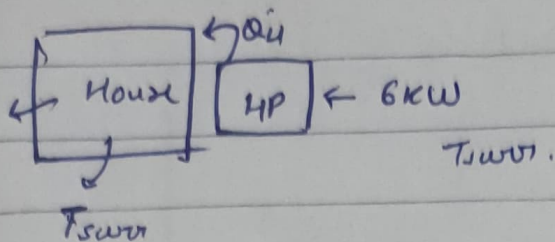 Q̇H
House
HP ← 6KW
Tsurr.
Tsurr